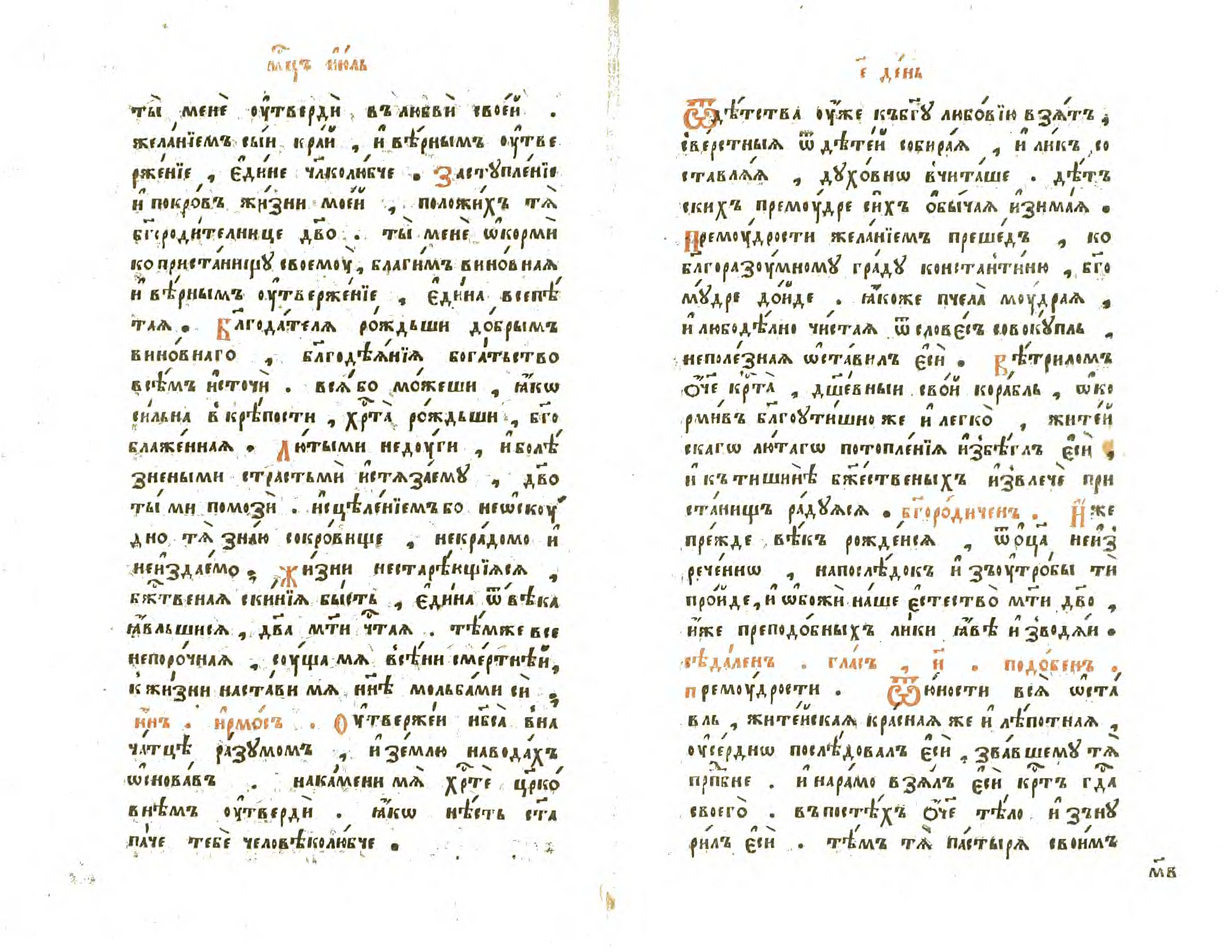 мⷭ҇цъ і҆ю́ль
ты̀ менѐ ᲂу҆твердѝ въ любвѝ свое́й .
жела́нїемъ сы́и кра́й , и҆ вѣ́рнымъ ᲂу҆тве
рже́нїе , є҆ди́не чл҃колю́бче . Заступле́нїе
и҆ покро́въ жи́зни мое́й , положи́хъ тѧ̀
бг҃оро́дителнице дв҃о . ты̀ менѐ ѡ҆кормѝ
ко приста́нищꙋ своемоу̀ , благи́мъ вино́внаѧ
и҆ вѣ́рнымъ ᲂу҆твержє́нїе , є҆ди́на всепѣ́
таѧ . Благода́телѧ ро́ждьши до́брымъ
вино́внаго , бл҃годѣѧ́нїѧ бога́тьство
всѣ́мъ и҆сточѝ . всѧ́ бо мо́жеши , ꙗ҆́кѡ
си́льна в крѣ́пости , хрⷭ҇та̀ ро́ждьши , бг҃о
блаже́ннаѧ . Лю́тыми недоу́ги , и҆ болѣ́
знеными страстьмѝ и҆стѧза́емꙋ , дв҃о
ты́ ми помозѝ . и҆сцѣле́нїемъ бо неѡ҆скоу́
дно тѧ̀ зна́ю сокро́вище , некра́домо и҆
неи҆здае́мо . Жи́зни нестарѣ́ющїѧсѧ ,
бжⷭ҇твенаѧ ски́нїѧ бы́сть , є҆ди́на ѿ вѣ́ка
ꙗ҆́вльшисѧ , дв҃а мт҃и чⷭ҇таѧ . тѣ́мже все
непоро́чнаѧ , соу́ща мѧ в сѣ́ни сме́ртнѣй ,
к жи́зни наста́ви мѧ нн҃ѣ мольба́ми си ,
и҆́нъ . і҆рмо́съ . Оу҆твержє́и нб҃са̀ в на
ча́тцѣ ра́зумомъ , и҆ зе́млю на вода́хъ
ѡ҆снова́въ . на ка́мени мѧ̀ хрⷭ҇тѐ цр҃ко
внѣмъ ᲂу҆твердѝ . ꙗ҆́кѡ нѣ́сть ст҃а
па́че тебѐ человѣколю́бче .
є҃ де́нь
Ѿ дѣ́тства ᲂу҆́же къ бг҃ꙋ любо́вїю взѧ́тъ ,
све́рстныѧ ѿ дѣте́й собира́ѧ , и҆ ли́къ со
ставлѧ́ѧ , дꙋхо́внѡ вчиташе . дѣ́т
скихъ премоу́дре си́хъ ѻ҆бы́чаѧ и҆зима́ѧ .
Премоу́дрости жела́нїемъ преше́дъ , ко
бл҃горазоу́мномꙋ гра́дꙋ константи́ню , бг҃о
мꙋ́дре до́йде . ꙗ҆́коже пчела̀ моу́драѧ ,
и҆ любодѣ́лно чи́стаѧ ѿ слове́съ совокꙋ́пль ,
неполе́знаѧ ѡ҆ста́вилъ є҆сѝ . Вѣ́триломъ
ѻ҆́ч҃е крⷭ҇та̀ , дш҃е́вныи сво́й кора́бль , ѡ҆ко
рми́въ бл҃гоути́шно же и҆ легко̀ , жите́й
скагѡ лю́тагѡ потопле́нїѧ и҆збѣ́глъ є҆сѝ ,
и҆ къ тишинѣ̀ бж҃ественыхъ и҆звлечѐ при
ста́нищъ ра́дꙋѧсѧ . бг҃оро́диченъ . И҆́же
пре́жде вѣ́къ рожде́исѧ , ѿ ѻ҆ц҃а̀ неи҆з̾
рече́ннѡ , напослѣ́докъ и҆зъ оу҆тро́бы ти
про́йде , и҆ ѡ҆божѝ на́ше є҆стество̀ мт҃и дв҃о ,
и҆́же преподо́бныхъ ли́ки ꙗ҆́вѣ и҆зводѧ́и .
сѣда́ленъ . гла́съ , и҃ . подо́бенъ .
премоу́дрости . Ѿ ю҆́ности всѧ̀ ѡ҆ста́
вль , жите́йскаѧ кра́снаѧ же и҆ лѣ́потнаѧ ,
ᲂу҆се́рднѡ послѣ́довалъ є҆сѝ , зва́вшемꙋ тѧ̀
прпⷣбне . и҆ на ра́мо взѧ́лъ є҆сѝ крⷭ҇тъ гдⷭ҇а
своего̀ . въ посте́хъ ѻ҆́ч҃е тѣ́ло и҆зънꙋ
ри́лъ є҆сѝ . тѣ́мъ тѧ̀ па́стырѧ свои́мъ
м҃в